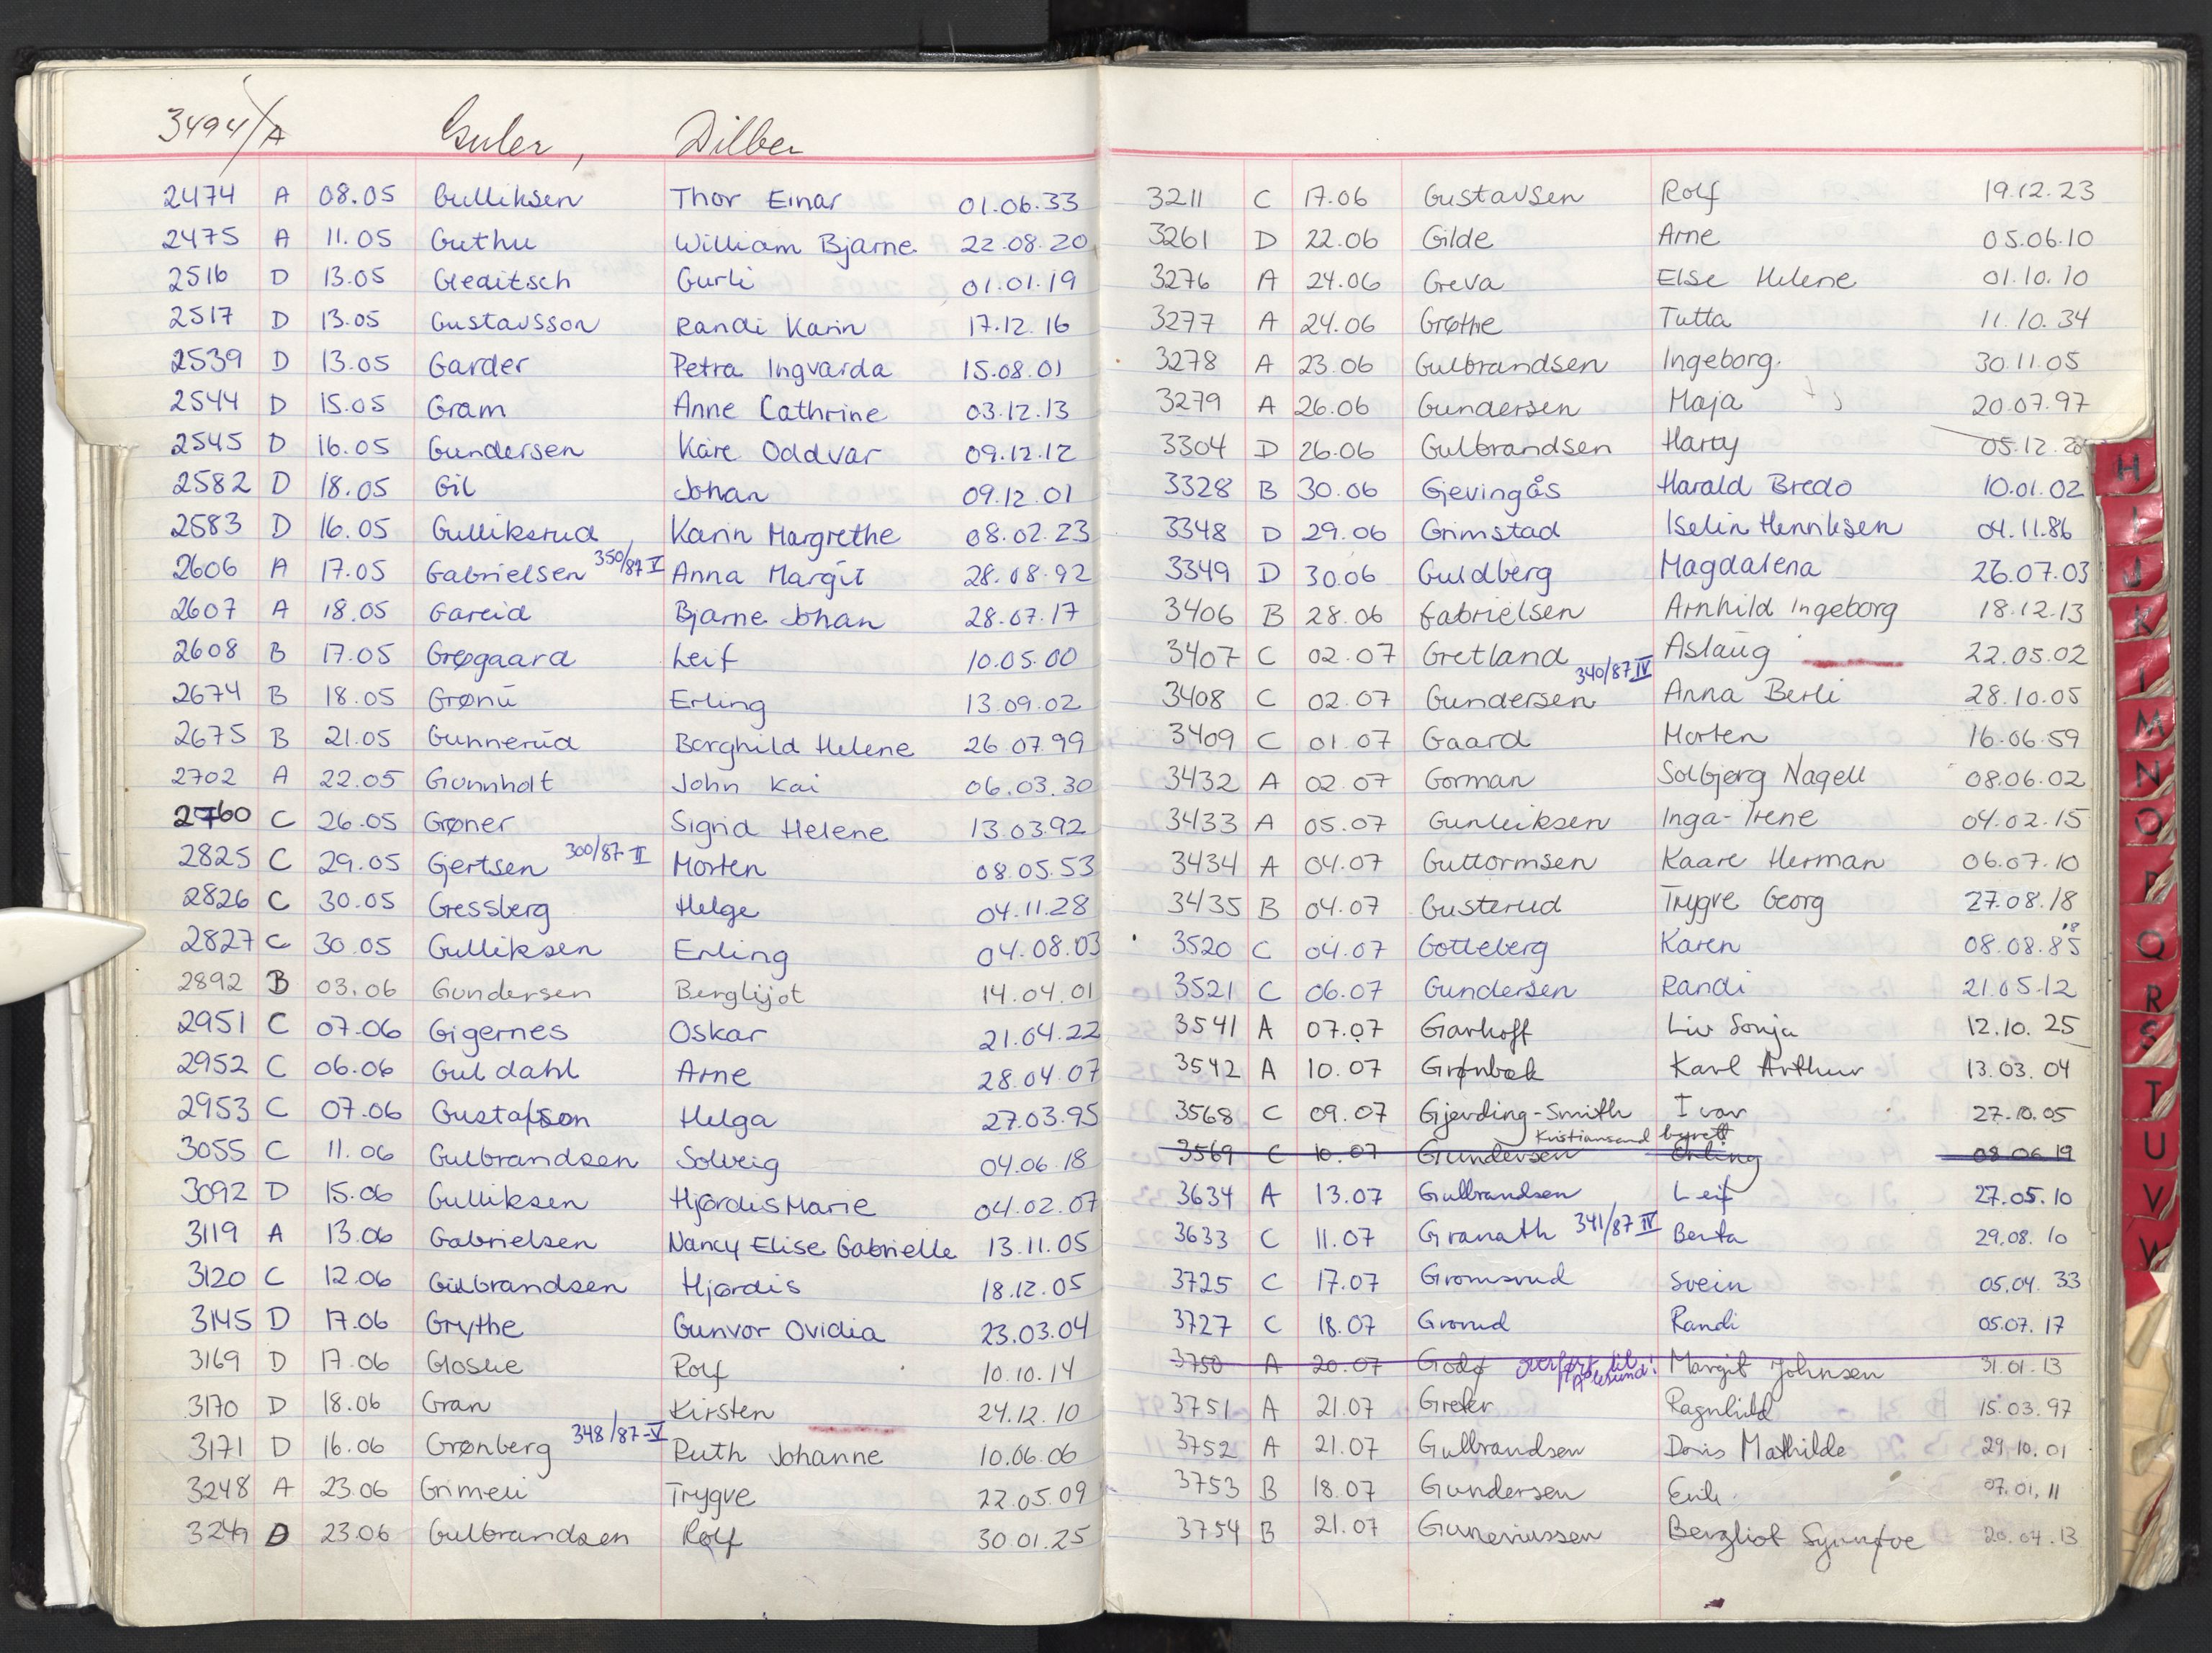 3494/A Guler, Dilber
2474 A 08.05 Gulliksen Thor Einar 01.06.33
2475 A 11.05 Guthu William Bjarne 22.08.20
2516 D 13.05 Gleditsch Gurli 01.01.19
2517 D 13.05 Gustavsson Randi Karin 17.12.16
2539 D 13.05 Garder Petra Ingvarda 15.08.01
2544 D 15.05 Gram Anne Cathrine 03.12.13
2545 D 16.05 Gundersen Kåre Oddvar 09.12.12
2582 D 18.05 Gil Johan 09.12.01
2583 D 16.05 Gulliksrud Karin Margrethe 08.02.23
2606 A 17.05 Gabrielsen 350/87 V Anna Margit 28.08.92
2607 A 18.05 Gareid Bjarne Johan 28.07.17
2608 B 17.05 Grøgaard Leif 10.05.00
2674 B 18.05 Grønli Erling 13.09.02
2675 B 21.05 Gunnerud Borghild Helene 26.07.99
2702 A 22.05 Gunnholt John Kai 06.03.30
2760 C 26.05 Grøner Sigrid Helene 13.03.92
2825 C 29.05 Gjertsen 300/87 II Morten 08.05.53
2826 C 30.05 Gressberg Helge 04.11.28
2827 C 30.05 Gulliksen Erling 04.08.03
2892 B 03.06 Gundersen Berglijot 14.04.01
2951 C 07.06 Gigernes Oskar 21.04.22
2952 C 06.06 Guldahl Arne 28.04.07
2953 C 07.06 Gustafson Helga 27.03.95
3055 C 11.06 Gulbrandsen Solveig 04.06.18
3092 D 15.06 Gulliksen Hjørdis Marie 04.02.07
3119 A 13.06 Gabrielsen Nancy Elise Gabrielle 13.11.05
3120 C 12.06 Gulbrandsen Hjørdis 18.12.05
3145 D 17.06 Grythe Gunvor Ovidia 23.03.04
3169 D 17.06 Gloslie Rolf 10.10.14
3170 D 18.06 Gran Kirsten 24.12.10
3171 D 16.06 Grønberg 348/87-V Ruth Johanne 10.06.06
3248 A 23.06 Grimeli Trygve 22.05.09
3249 D 23.06 Gulbrandsen Rolf 30.01.25
3211 C 17.06 Gustavsen Rolf 19.12.23
3261 D 22.06 Gilde Arne 05.06.10
3276 A 24.06 Greva Else Helene 01.10.10
3277 A 24.06 Grøthe Tutta 11.10.34
3278 A 23.06 Gulbrandsen Ingeborg 30.11.05
3279 A 26.06 Gundersen Maja 20.07.97
3304 D 26.06 Gulbrandsen Harry 05.12.20
3328 B 30.06 Gjevingås Harald Bredo 10.01.02
3348 D 29.06 Grimstad Iselin Henriksen 04.11.86
3349 D 30.06 Guldberg Magdalena 26.07.03
3406 B 28.06 Gabrielsen Arnhild Ingeborg 18.12.13
3407 C 02.07 Gretland Aslaug 22.05.02
3408 C 02.07 Gundersen 340/87 IV Anna Berli 28.10.05
3409 C 01.07 Gaard Morten 16.06.59
3432 A 02.07 Gorman Solbjørg Nagell 08.06.02
3433 A 05.07 Gunleiksen Inga-Irene 04.02.15
3434 A 04.07 Guttormsen Kaare Herman 06.07.10
3435 B 04.07 Gusterud Trygve Georg 27.08.18
3520 C 04.07 Gotteberg Karen 08.08.85
3521 C 06.07 Gundersen Randi 21.05.12
3541 A 07.07 Garhoff Liv Sonja 12.10.25
3542 A 10.07 Grønbek Karl Arthur 13.03.04
3568 C 09.07 Gjerding-Smith Ivar 27.10.05
Kristiansand byrett
3569 C 10.07 Gundersen Erling 08.06.19
3634 A 13.07 Gulbrandsen Leif 27.05.10
3633 C 11.07 Granath 341/87 IV Berta 29.08.10
3725 C 17.07 Gromsrud Svein 05.04.33
3727 C 18.07 Grorud Randi 05.07.17
3750 A 20.07 Godø overført til Ålesund! Margit Johnsen 31.01.13
3751 A 21.07 Greker Ragnhild 15.03.97
3752 A 21.07 Gulbrandsen Doris Mathilde 29.10.01
3753 B 18.07 Gundersen Erik 07.01.11
3754 B 21.07 Guneriussen Bergliot Synnøve 20.04.13
H
I
J
K
L
M
N
O
P
Q
R
S
T
U
V
W